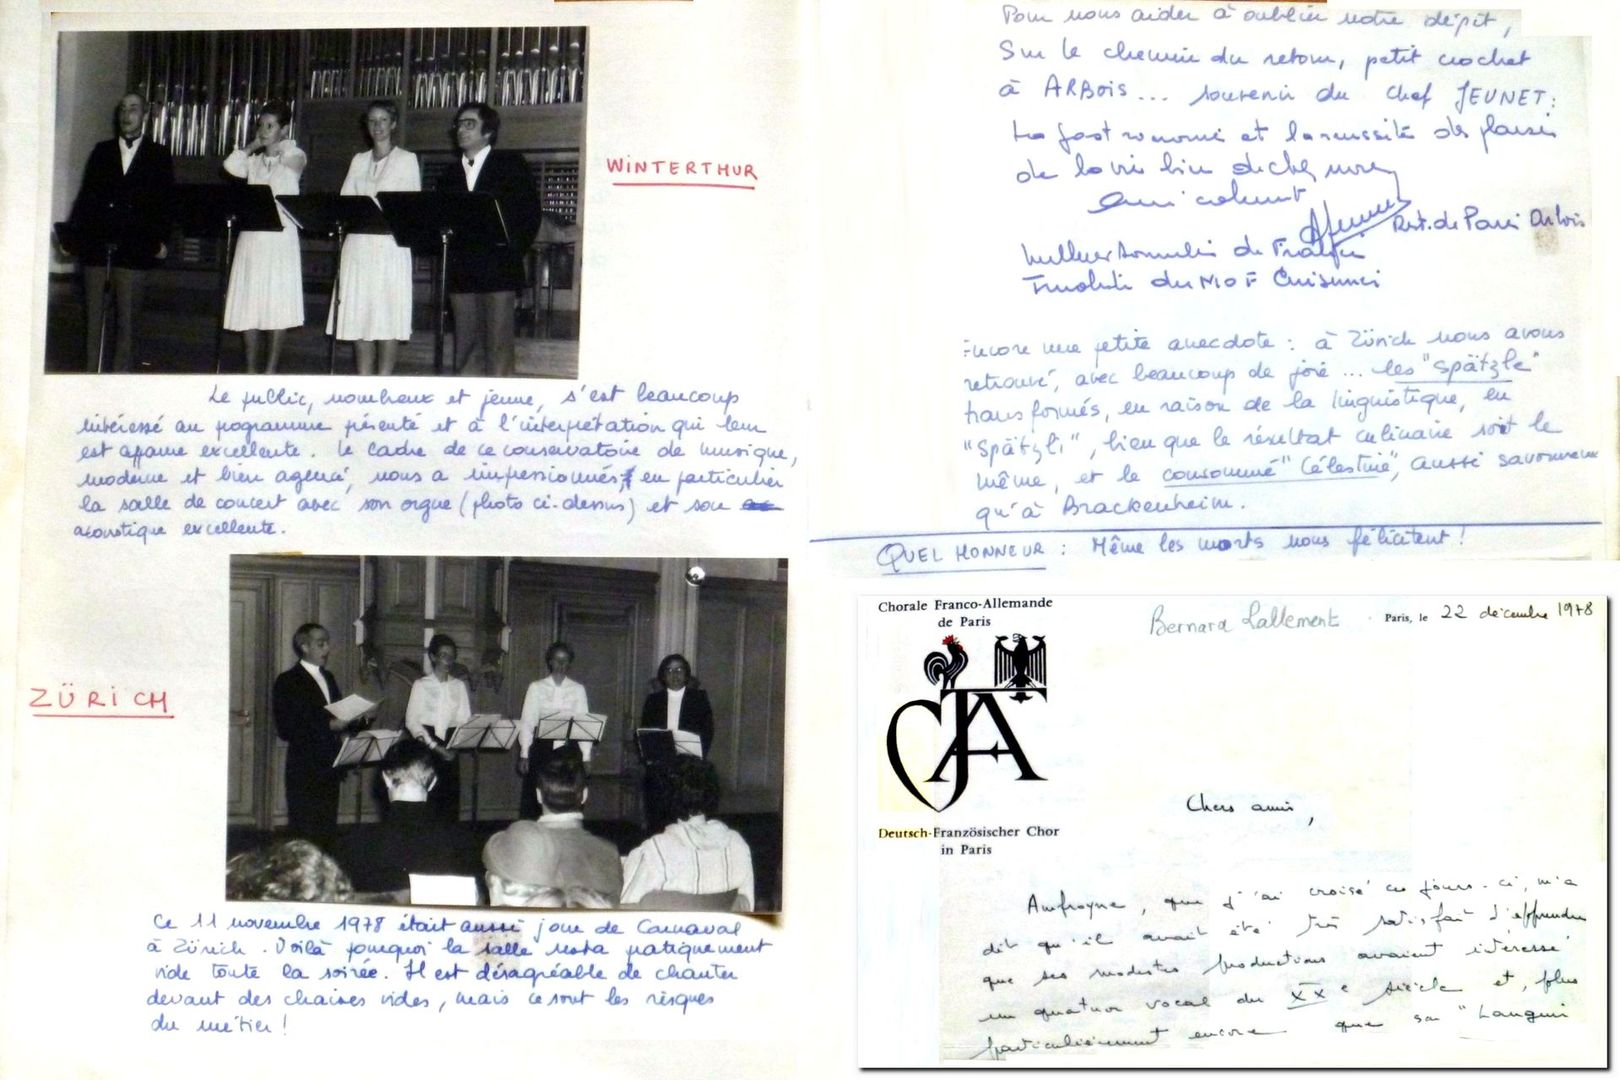 WINTERTHUR
Le public, nombreux et jeune, s'est beaucoup
intéressé au programme présenté et à l'interprétation qui leur
est apparue excellente. Le cadre de ce conservatoire de musique,
moderne et bien agencé, nous a impressionnés, en particulier
la salle de concert avec son orgue (photo ci-dessus) et son
acoustique excellente.
ZÜRICH
Ce 11 novembre 1978 était aussi jour de Carnaval
à Zürich. Voilà pourquoi la salle resta pratiquement
vide toute la soirée. Il est désagréable de chanter
devant des chaises vides, mais ce sont les risques
du métier !
Pour nous aider à oublier notre dépit,
Sur le chemin du retour, petit crochet
à ARBOIS... souvenir du chef JEUNET :
et la réussite des plaisirs
de la vie
Amicalement
Rest. de Paris Arbois
Meilleur Sommelier de France
Finaliste du MOF Cuisinier
Encore une petite anecdote : à Zürich nous avons
retrouvé, avec beaucoup de joie ... les "Spätzle"
transformés, en raison de la linguistique, en
"Spätzli", bien que le résultat culinaire soit le
même, et le consommé "Célestine", aussi savoureux
qu'à Brackenheim.
QUEL HONNEUR : Même les morts nous félicitent !
Chorale Franco-Allemande
de Paris
Bernard Lallement
Paris, le 22 décembre 1978
CFA
Deutsch-Französischer Chor
in Paris
Chers amis,
que j'ai croisé ces jours-ci, m'a
dit qu'il avait été très satisfait d'apprendre
que ses modestes productions avaient intéressé
un quatuor vocal du XXe siècle et, plus
particulièrement encore que sa "Languir